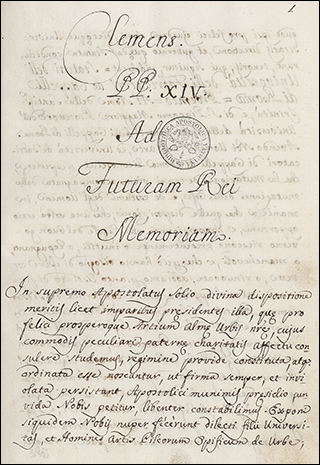 1
Clemens.
PP. XIV.
Ad
Futuram Rei
Memoriam.
In supremo Apostolatus Solio divina dispositione
meritis licet imparibus presidentes illa, que pro
felici prosperoque Artium alme Urbis nre, cujus
commodis peculiari paterne charitatis affectu con
sulere studemus, regimine provide constituta, atq
ordinata esse noscuntur, ut firma semper, et invi
olata persistant, Apostolici munimis presidio cum
vida Nobis petitur, libenter constabilimus. Expon
siquidem Nobis nuper fecerunt dilecti filii Universi
tas, et Homines Artis Piscorum Opificum de Urbe,